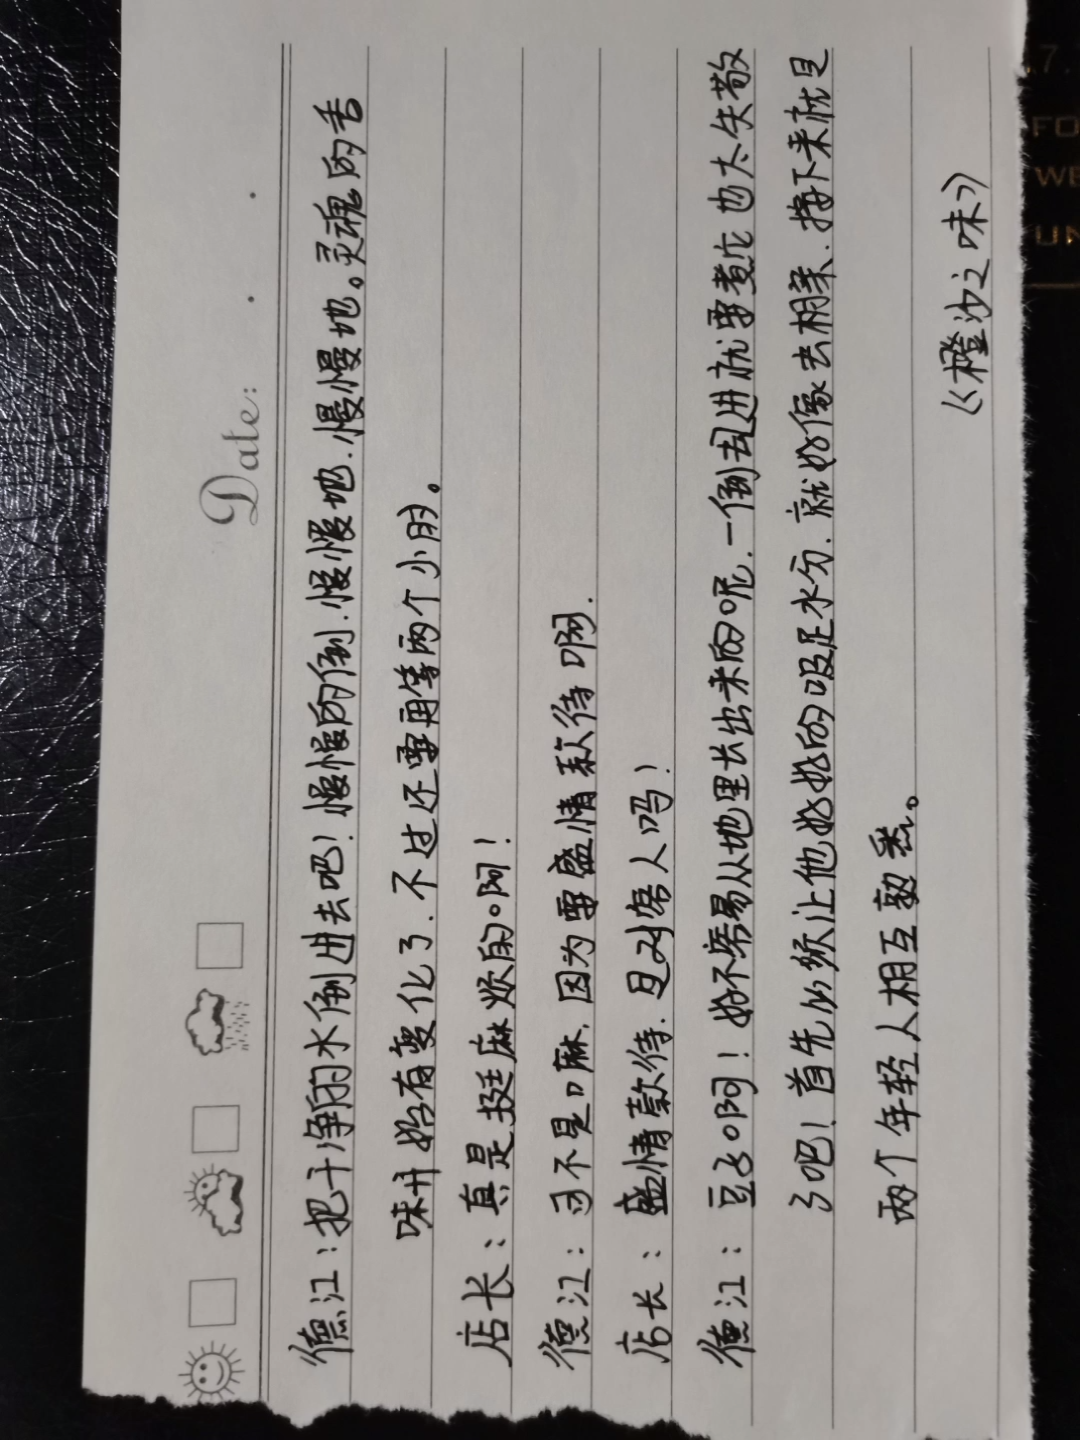 Date:
德江：把干净的水倒进去吧！慢慢的倒.慢慢地.慢慢地。灵魂的舌
味开始有变化了.不过还要再等两个小时。
店长：真是挺麻烦的啊！
德江：可不是嘛.因为要盛情款待啊.
店长：盛情款待.是对客人吗？
德江：豆子啊！好不容易从地里长出来的呢.一倒进就要煮它也太失敬
了吧！首先必须让他好好的吸足水分.就好像去相亲.接下来就是
两个年轻人相互熟悉。
《橙沙之味》
.7.
FO
WE
UN